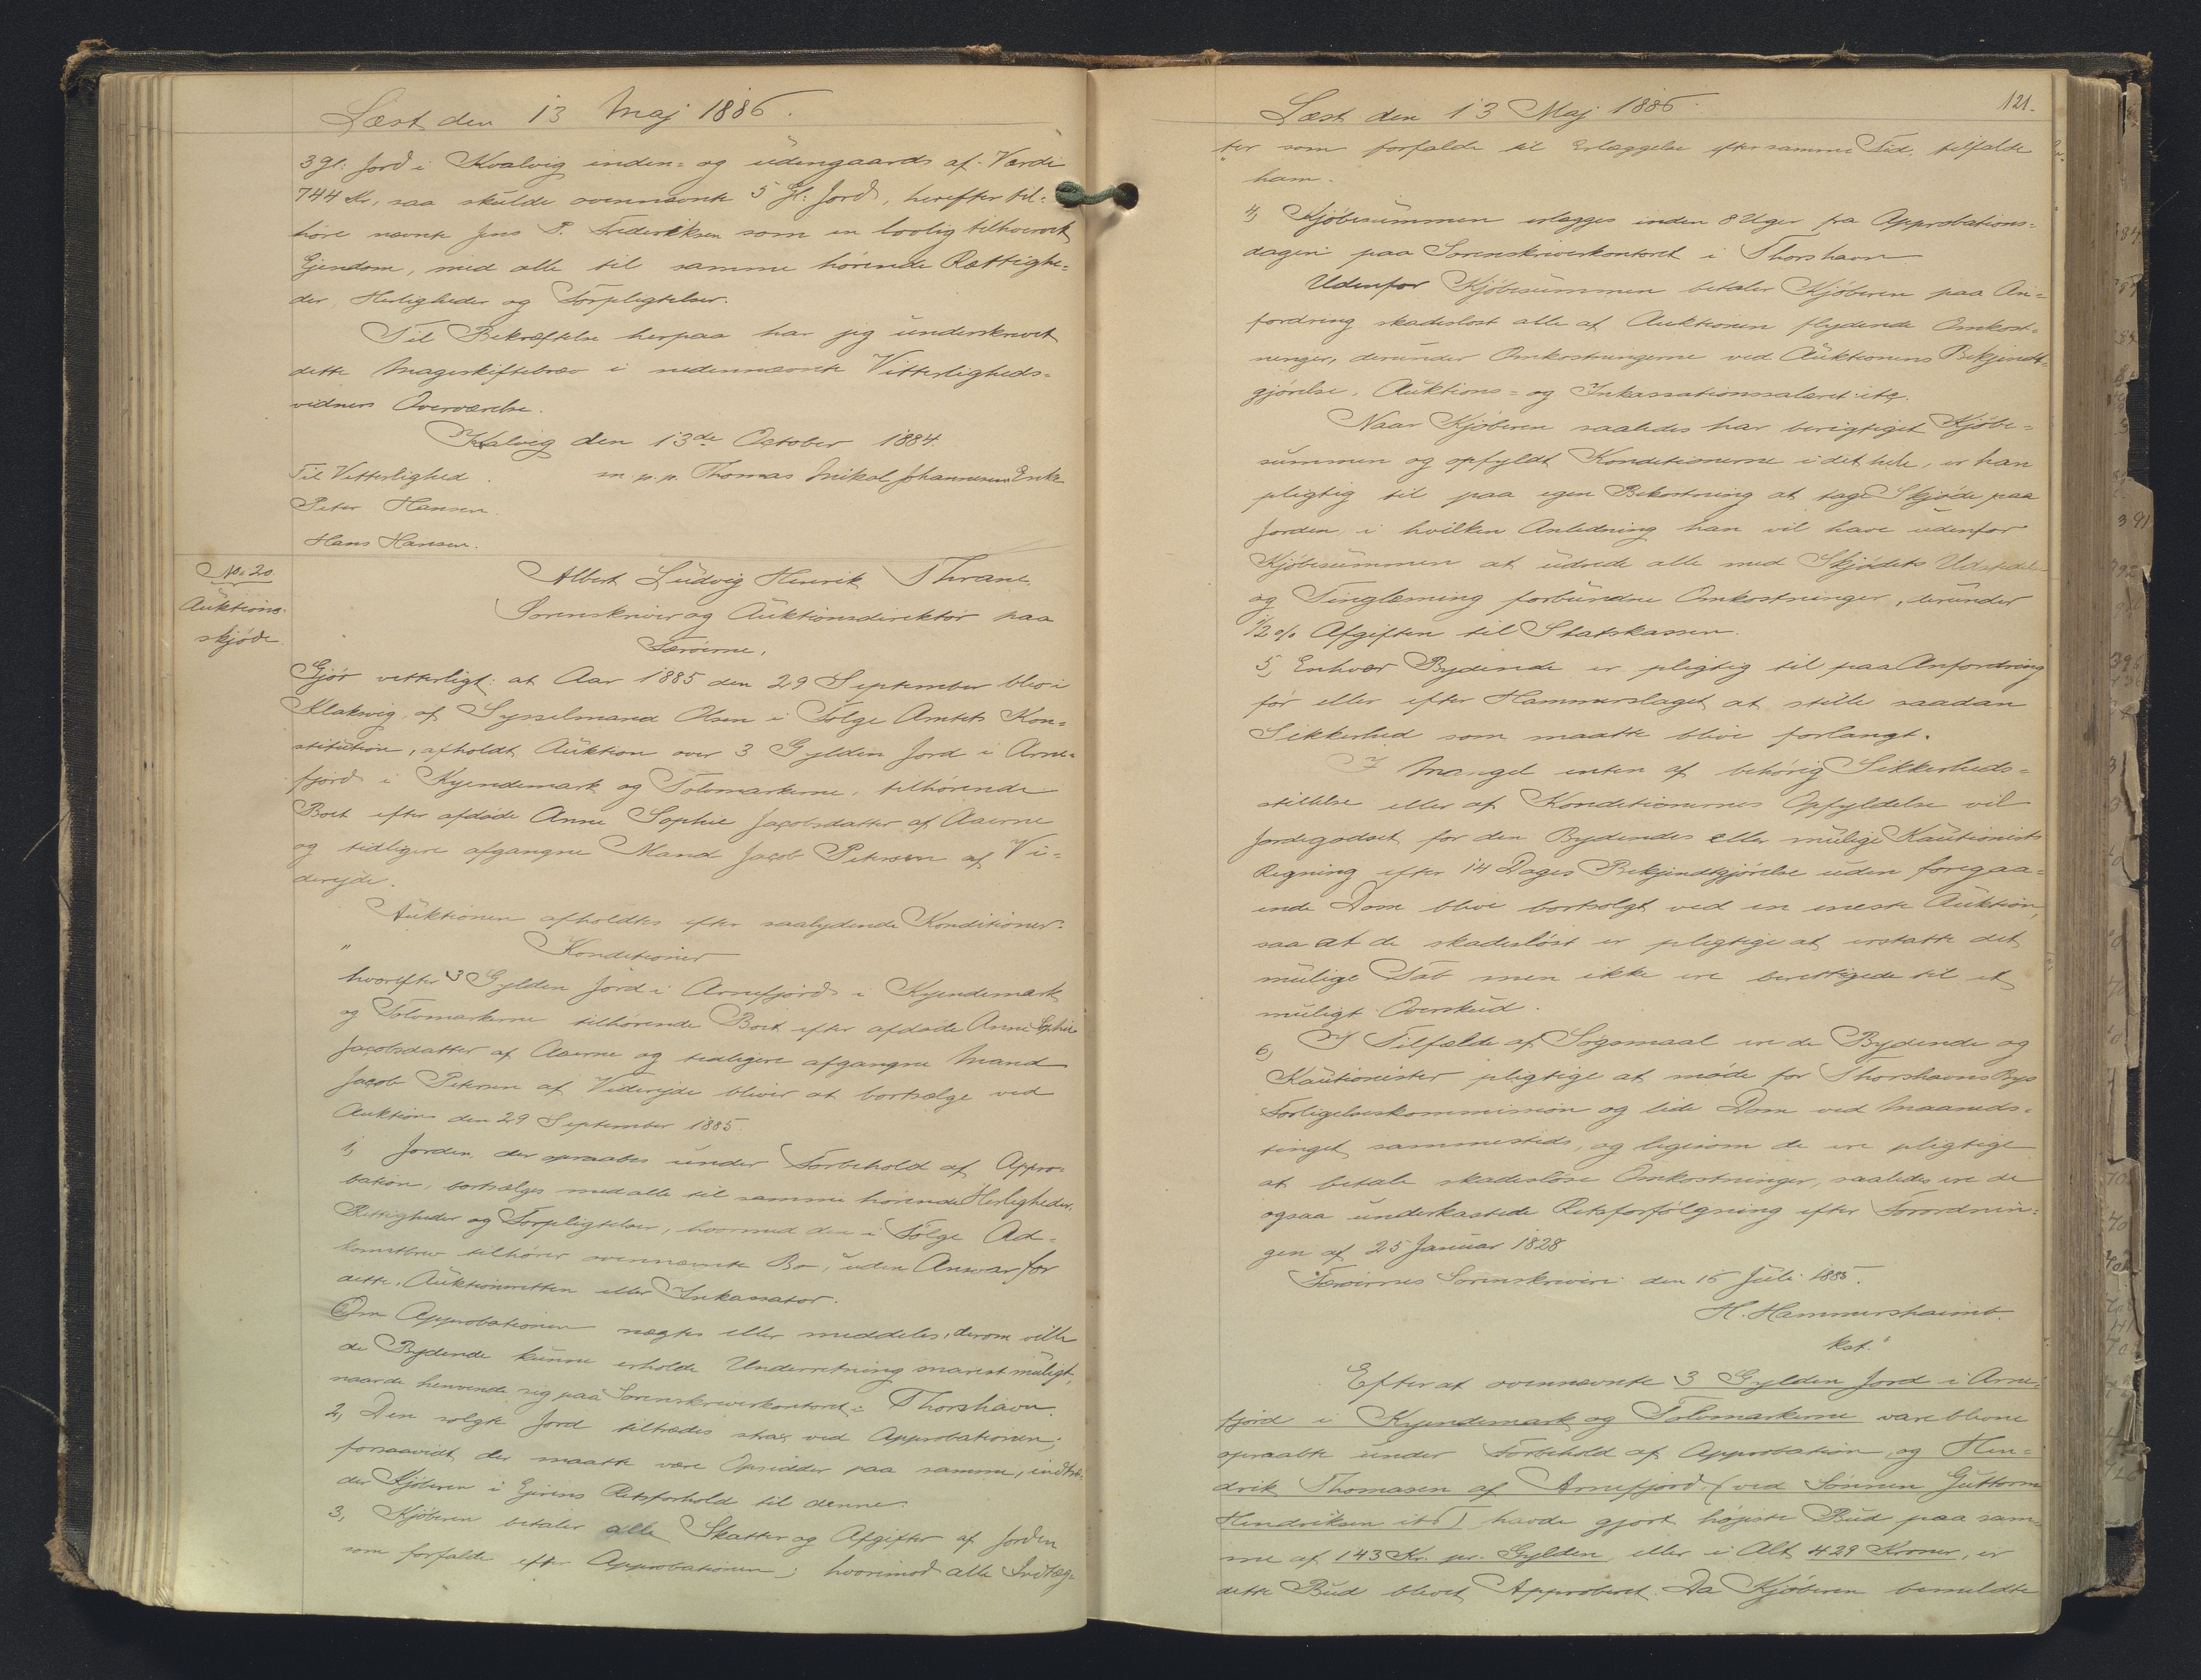 Læst den 13 Maj 1886.
3 Gl. Jord i Kvalvig inden= og udengaards af Værdi
744 Kr, saa skulde ovennævnte 5 Gl: Jord, herefter til=
høre nævnte Jens P. Frederiksen som en lovlig tilhvervet
Ejendom, med alle til samme hørende Rettighe=
der, Herligheder og Forpligtelser.
Til Bekræftelse herpaa har jeg underskrevet
dette Mageskiftebrev i nedennævnte Vitterligheds=
vidners Overværelse.
Kvalvig den 13de October 1884.
Til Vitterlighed. m. p. p. Thomas Mikal Johannesens Enke
Peter Hansen.
Hans Hansen.
No. 20.
Auktions-
skjøde
Albert Ludvig Henrik Thrane
Sorenskriver og Auktionsdirektør paa
Færøerne,
Gjør vetterligt: at Aar 1885 den 29 September blev i
Klaksvig, af Sysselmand Olsen i Følge Amtets Kon=
stitution, afholdt Auktion over 3 Gylden Jord i Arne=
fjord i Kyendemark og Tolvmarkerne, tilhørende
Boet efter afdøde Anne Sophie Jacobsdatter af Aaerne
og tidligere afgangne Mand Jacob Petersen af Vi=
derejde.
Auktionen afholdtes efter saalydende Konditioner:
" Konditioner
hvorefter 3 Gylden Jord i Arnefjord i Kyendemark
og Tolvmarkerne tilhørende Boet efter afdøde Anne Sophie
Jacobsdatter af Aaerne og tidligere afgangne Mand
Jacob Petersen af Viderejde bliver at bortsælge ved
Auktion den 29 September 1885.
1, Jorden, der opraabes under Forbehold af Appro=
bation, bortsælges med alle til samme hørende Herligheder,
Rettigheder og Forpligtelser, hvormed den i Følge Ad=
komstbrev tilhører ovennævnte Bo, uden Ansvar for
dette, Auktionsretten eller Inkassator.
Om Approbationen nægtes eller meddeles, derom ville
de Bydende kunne erholde Underretning snarest muligt,
naar de henvende sig paa Sorenskriverkontoret i Thorshavn.
2, Den solgte Jord tiltrædes strax ved Approbationen;
forsaavidt der maatte være Opsidder paa samme, indtræ-
der Kjøberen i Ejerens Retsforhold til denne.
3, Kjøberen betaler alle Skatter og Afgifter af Jorden
som forfalde efter Approbationen; hvorimod alle Indtæg=
Læst den 13 Maj 1886. 121.
ter som forfalde til Erlæggelse efter samme Tid, tilfalde
ham.
4, Kjøbesummen erlægges inden 8 Uger fra Approbations=
dagen paa Sorenskriverkontoret i Thorshavn.
Udenfor Kjøbesummen betaler Kjøberen paa An=
fordring skadesløst alle af Auktionen flydende Omkost=
ninger, derunder Omkostningerne ved Auktionens Bekjendt=
gjørelse, Auktions= og Inkassationssalæret itq.
Naar Kjøberen saaledes har berigtiget Kjøbe=
summen og opfyldt Konditionerne i det hele, er han
pligtig til paa egen Bekostning at tage Skjøde paa
Jorden, i hvilken Anledning han vil have udenfor
Kjøbesummen at udrede alle med Skjødets Udstedelse
og Tinglæsning forbundne Omkostninger, derunder
1/2 o/o Afgiften til Statskassen.
5, Enhver Bydende er pligtig til paa Anfordring
før eller efter Hammerslaget at stille saadan
Sikkerhed som maatte blive forlangt.
I Mangel enten af behørig Sikkerheds=
stillelse eller af Konditionernes Opfyldelse vil
Jordegodset for den Bydendes eller mulige Kautionists
Regning efter 14 Dages Bekjendtgjørelse uden foregaa=
ende Dom blive bortsolgt ved en eneste Auktion,
saa at de skadesløst er pligtige at erstatte det
mulige Tab men ikke ere berettigede til et
muligt Overskud.
6, I Tilfælde af Søgsmaal ere de Bydende og
Kautionister pligtige at møde for Thorshavns Bys
Forligelseskommission og lide Dom ved Maaneds=
tinget sammesteds, og ligesom de ere pligtige
at betale skadesløse Omkostninger, saaledes ere de
ogsaa underkastede Retsforfølgning efter Forordnin=
gen af 25 Januar 1828
Færøernes Sorenskriveri den 16 Juli 1885.
H. Hammershaimb.
kst."
Efter at ovennævnte 3 Gylden Jord i Arne=
fjord i Kyendemark og Tolvmarkerne vare blevne
opraabte under Forbehold af Approbation, og Hen=
drik Thomasen af Arnefjord (ved Sønnen Guttorm
Hendriksen itd) havde gjort højeste Bud paa sam=
me af 143 Kr. pr. Gylden, eller i Alt 429 Kroner, er
dette Bud blevet Approberet. Da Kjøberen bemeldte